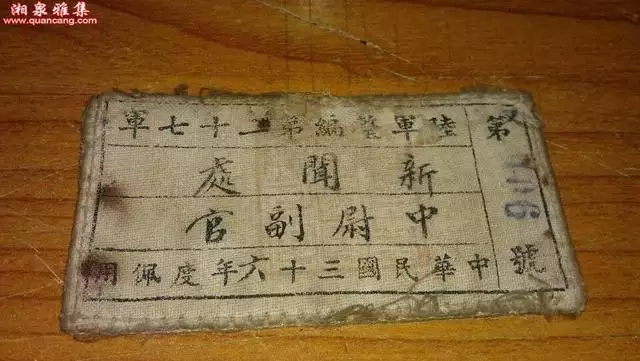 湘泉雅集
www.quancang.com
陸軍整編第二十七軍
新聞處
中尉副官
中華民國三十六年度佩用
第
號